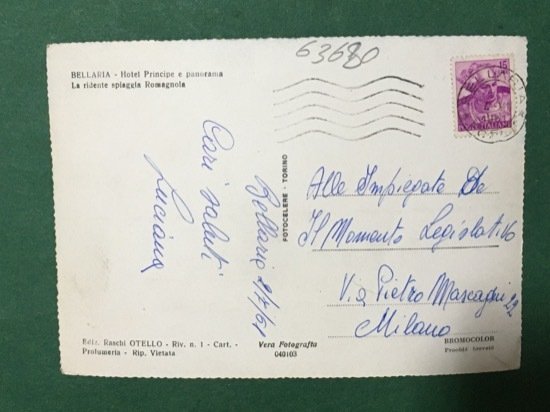 63680
BELLARIA - Hotel Principe e panorama
La ridente spiaggia Romagnola
15
Cari saluti
Luciana
Bellaria
FOTOCELERE - TORINO
Alle Impiegate De
Il Momento Legislativo
Via Pietro Mascagni 22
Milano
Ediz. Raschi OTELLO - Riv. n. 1 - Cart. -
Profumeria - Rip. Vietata
Vera Fotografia
040103
BROMOCOLOR